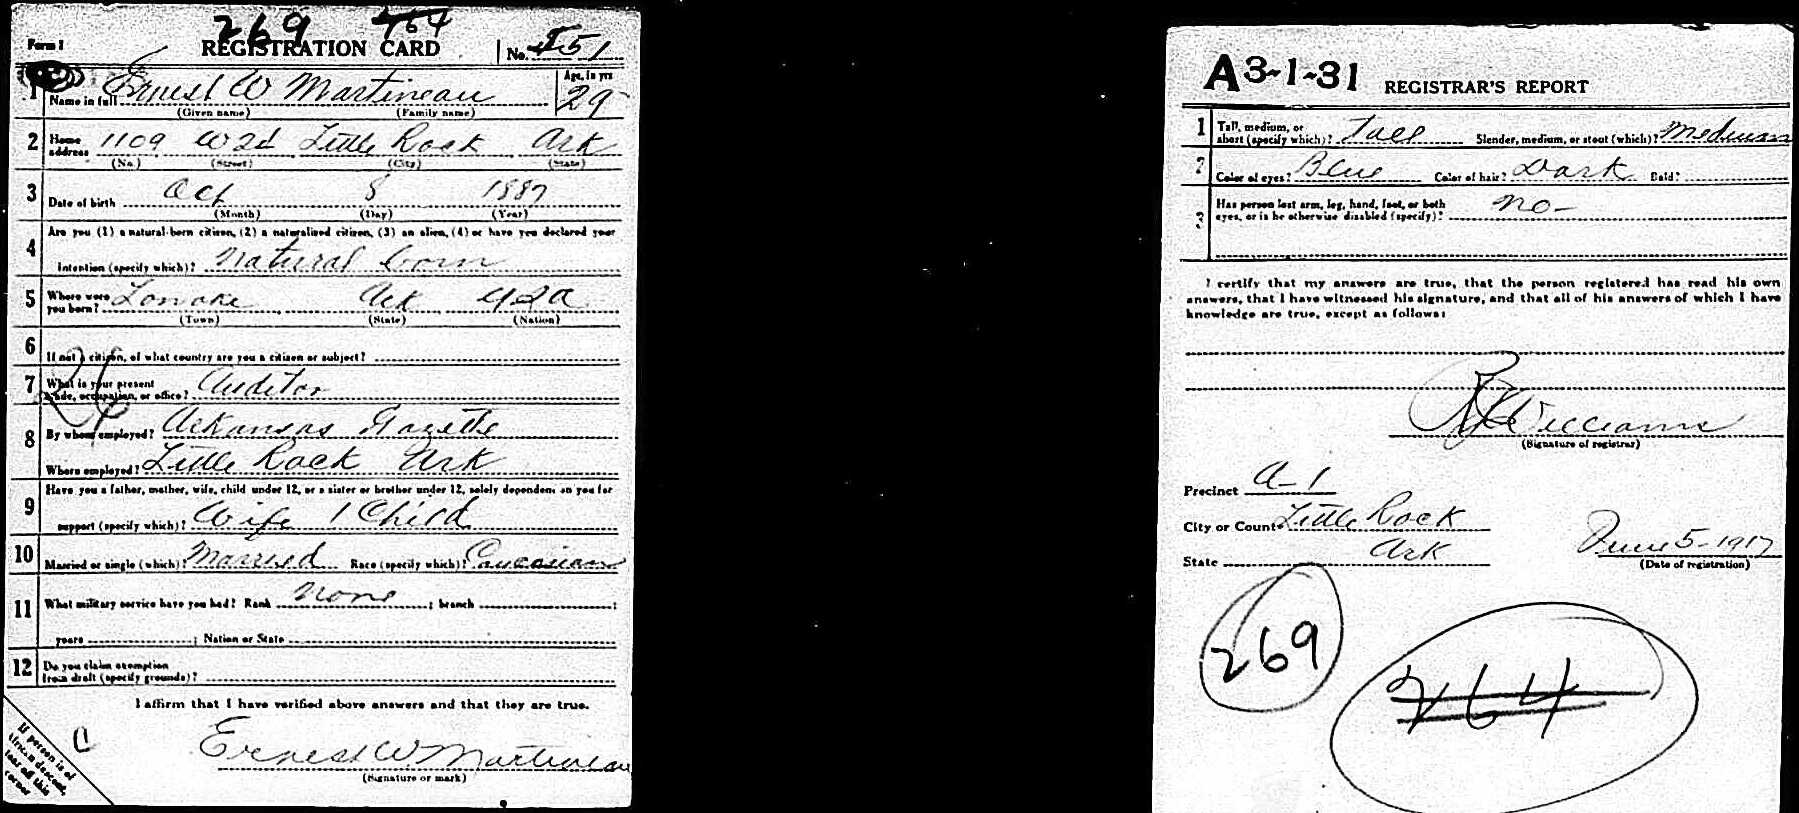 269 264
Form 1 REGISTRATION CARD No. 151
1 Name in full Ernest W Martineau Age, in yrs 29
(Given name) (Family name)
2 Home address 1109 W 2d Little Rock Ark
(No.) (Street) (City) (State)
3 Date of birth Oct 8 1887
(Month) (Day) (Year)
4 Are you (1) a natural-born citizen, (2) a naturalized citizen, (3) an alien, (4) or have you declared your
intention (specify which)? Natural born
5 Where were you born? Lonoke Ark USA
(Town) (State) (Nation)
6 If not a citizen, of what country are you a citizen or subject?
7 What is your present trade, occupation, or office? Auditor
26
8 By whom employed? Arkansas Gazette
Where employed? Little Rock Ark
9 Have you a father, mother, wife, child under 12, or a sister or brother under 12, solely dependent on you for
support (specify which)? Wife 1 Child
10 Married or single (which)? Married Race (specify which)? Caucasian
11 What military service have you had? Rank None ; branch ;
years ; Nation or State
12 Do you claim exemption
from draft (specify grounds)?
I affirm that I have verified above answers and that they are true.
Ernest W. Martineau
(Signature or mark)
If person is of
African descent,
tear off this
corner
A3-1-31 REGISTRAR'S REPORT
1 Tall, medium, or short (specify which)? Tall Slender, medium, or stout (which)? Medium
2 Color of eyes? Blue Color of hair? Dark Bald?
3 Has person lost arm, leg, hand, foot, or both
eyes, or is he otherwise disabled (specify)? No-
I certify that my answers are true, that the person registered has read his own
answers, that I have witnessed his signature, and that all of his answers of which I have
knowledge are true, except as follows:
Williams
(Signature of registrar)
Precinct A-1
City or County Little Rock
State Ark
June 5-1917
(Date of registration)
269
264